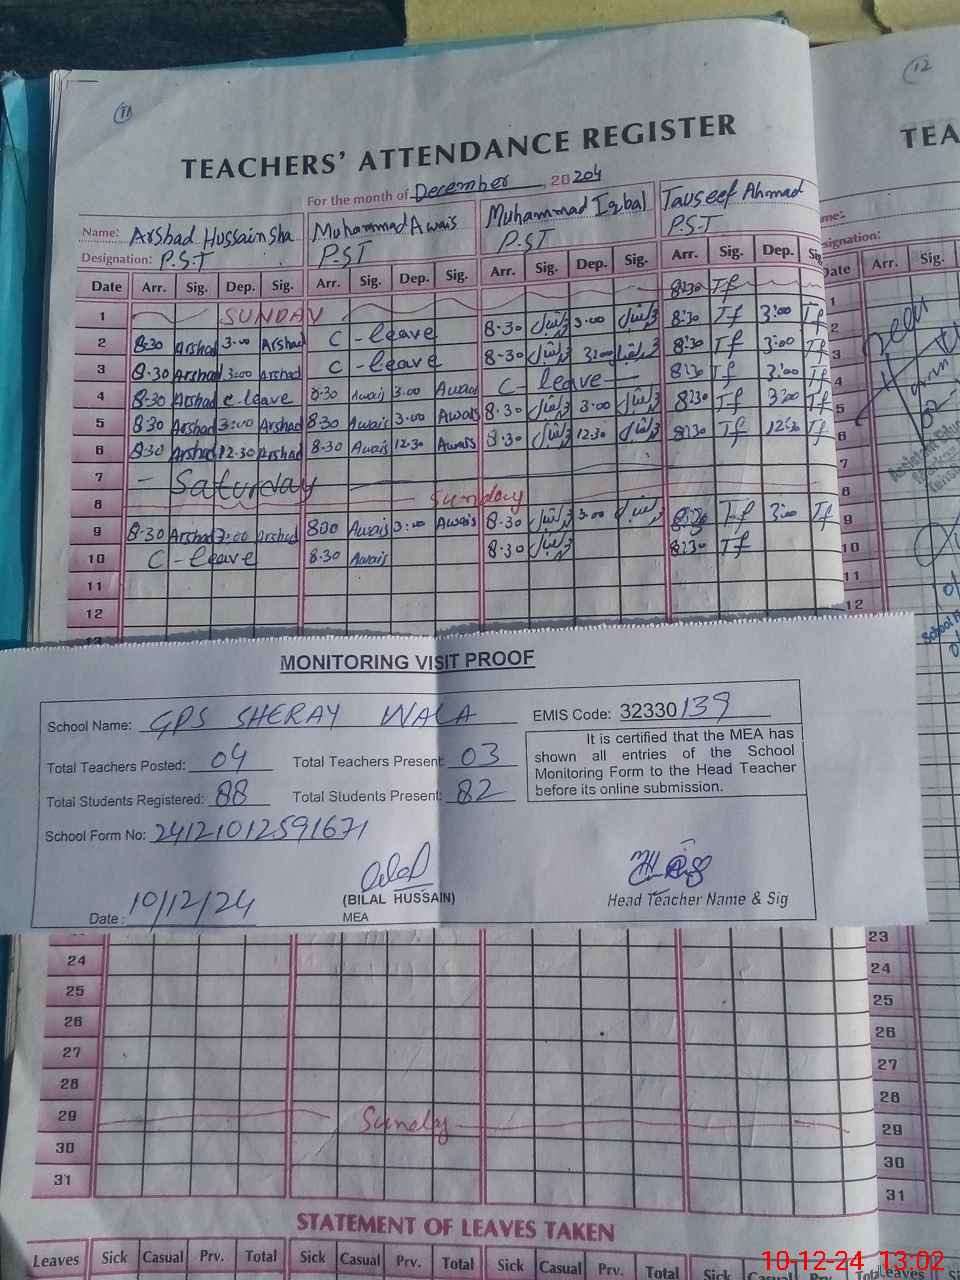 11
12
TEACHERS' ATTENDANCE REGISTER
TEA
For the month of December, 20204
Name: Arshad Hussainsha Muhammad Awais Muhammad Iqbal Tauseef Ahmad
Designation: P.S.T P.S.T P.S.T P.S.T
Date Arr. Sig. Dep. Sig. Arr. Sig. Dep. Sig. Arr. Sig. Dep. Sig. Arr. Sig. Dep. Sig.
8:30 Tf
1 SUNDAY
2 8:30 Arshad 3:00 Arshad C-leave 8-30 3:00 8:30 Tf 3:00 Tf
3 8.30 Arshad 3:00 Arshad C-leave 8-30 3:00 8:30 Tf 3:00 Tf
4 8-30 Arshad c-leave 8:30 Awais 3.00 Awais C-leave 8:30 Tf 3:00 Tf
5 8:30 Arshad 3:00 Arshad 8:30 Awais 3:00 Awais 8-30 3:00 8:30 Tf 3:00 Tf
6 8:30 Arshad 12.30 Arshad 8-30 Awais 12.30 Awais 8:30 12.30 8:30 Tf 12:30 Tf
7 - Saturday
8 Sunday
9 8-30 Arshad 3:00 Arshad 8:00 Awais 3:00 Awais 8-30 3:00 8:30 Tf 3:00 Tf
10 C-leave 8.30 Awais 8-30 8:30 Tf
11
12
13
MONITORING VISIT PROOF
School Name: GPS SHERAY WALA
EMIS Code: 32330139
Total Teachers Posted: 04 Total Teachers Present: 03
Total Students Registered: 88 Total Students Present: 82
School Form No: 24121012591671
It is certified that the MEA has
shown all entries of the School
Monitoring Form to the Head Teacher
before its online submission.
Date: 10/12/24
(BILAL HUSSAIN)
MEA
Head Teacher Name & Sig
24
25
26
27
28
29 Sunday
30
31
STATEMENT OF LEAVES TAKEN
Leaves Sick Casual Prv. Total Sick Casual Prv. Total Sick Casual Prv. Total Sick Casual Prv. Total
me:
signation:
Date Arr. Sig.
1
2
3
4
5
6
7
8
9
10
11
12
23
24
25
26
27
28
29
30
31
Leaves
10-12-24 13:02